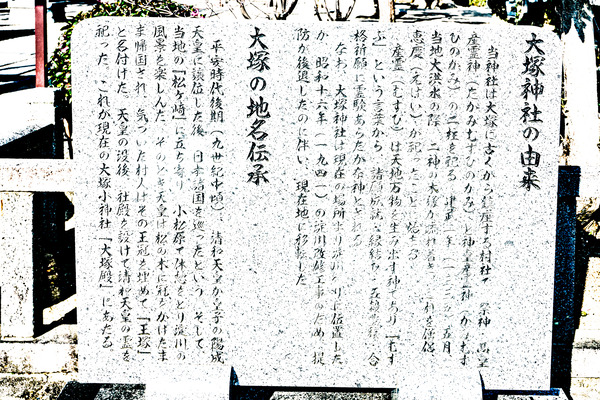 大塚神社の由来
当神社は大塚に古くから鎮座する村社で 祭神 高皇
産霊神(たかみむすびのかみ)と神皇産霊神(かみむす
びのかみ)の二柱を祀る 建武二年(一三三五)五月
当地大洪水の際、二神の木像が流れ着き れを僧侶
恵慶(えけい)が祀ったこと 始まる
産霊(むすび)は天地万物を生み出す神であり「むす
ぶ」という言葉から、諸願成就、縁結び、五穀豊穣、合
格祈願に霊験あらたかな神とされる
なお、大塚神社は現在の場所より淀川 りに位置した
が 昭和十六年(一九四一)の淀川改修工事のため、堤
防が後退したのに伴い、現在地に移転した
大塚の地名伝承
平安時代後期(九世紀中頃) 清和天皇が皇子の陽成
天皇に譲位した後、日本諸国を巡ったという そして、
当地の「松ヶ崎」に立ち寄り、小松原で休憩をとり淀川の
風景を楽しんだ。そのとき天皇は松の木に冠をかけたま
ま帰国され、気づいた村人はその王冠を埋めて「王塚」
と名付けた。天皇の没後、社殿を設けて清和天皇の霊を
祀った。これが現在の大塚小神社「大塚殿」にあたる